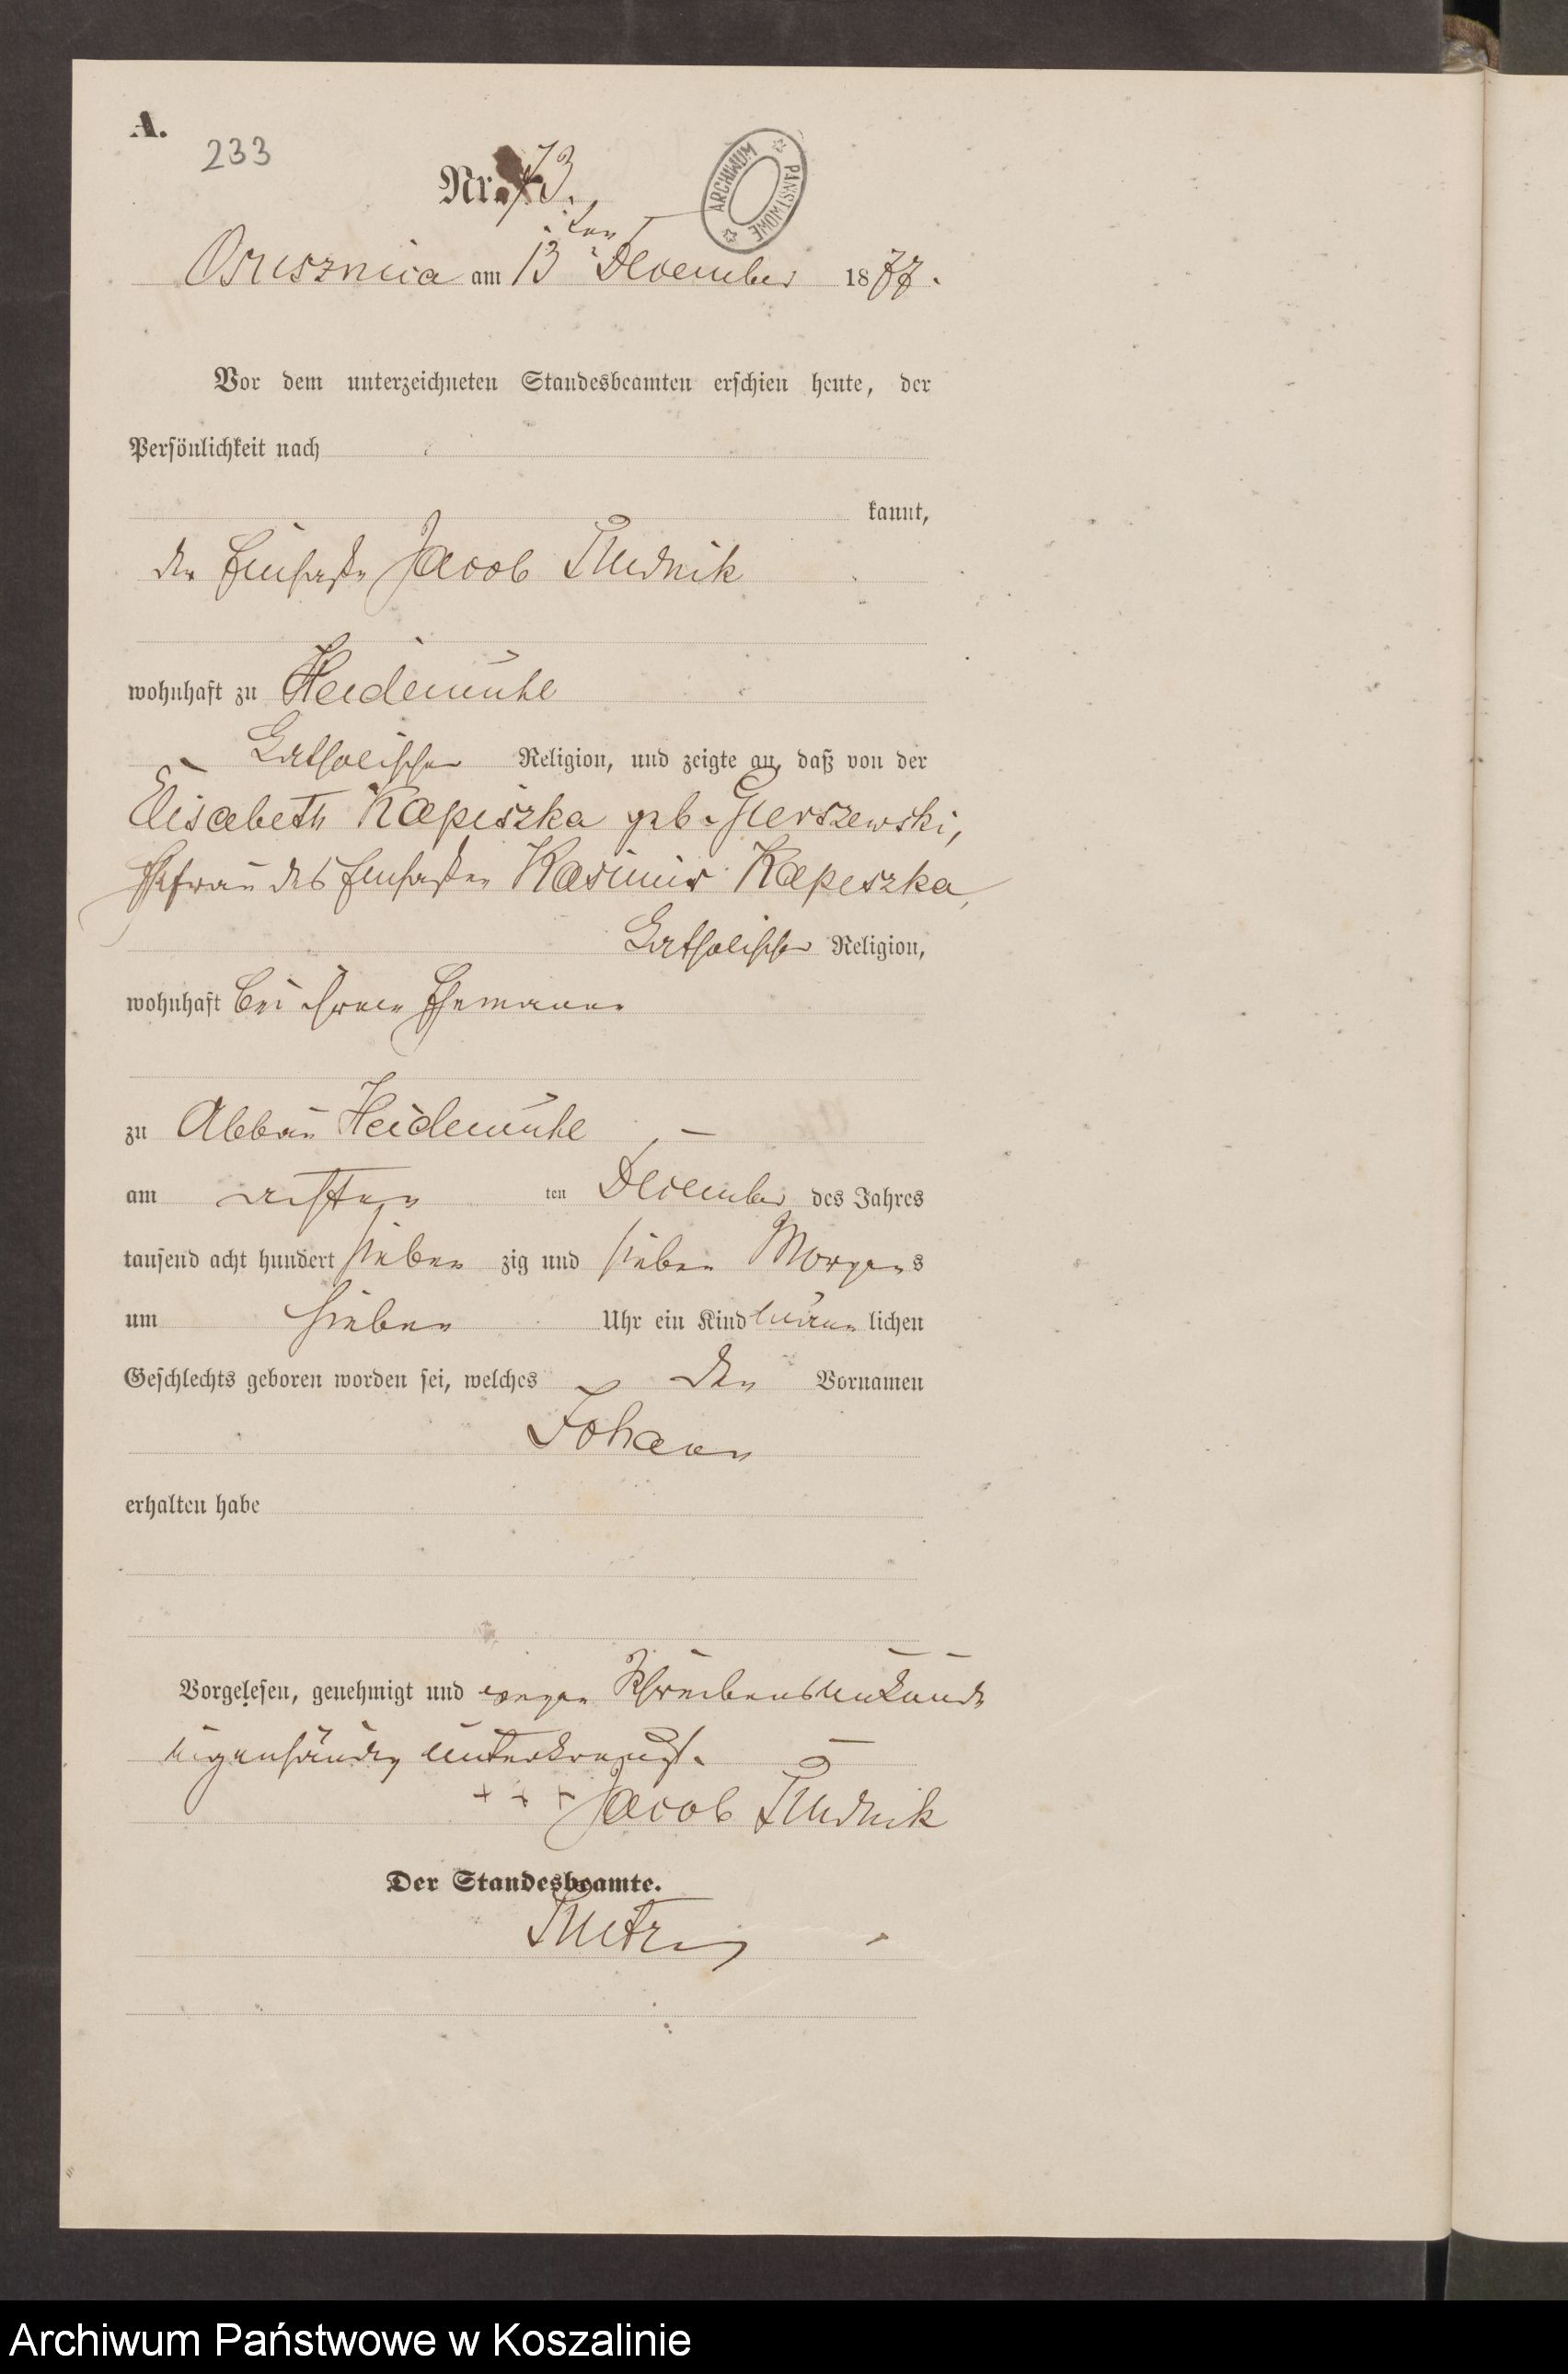 A.
233
Nr. 73.
ARCHIWUM PAŃSTWOWE
Osusznica am 13ten December 1877.
Vor dem unterzeichneten Standesbeamten erschien heute, der
Persönlichkeit nach
kannt,
der Einsaße Jacob Rudnik
wohnhaft zu Heidemühl
Katholischer Religion, und zeigte an, daß von der
Elisabeth Kapiszka geb. Gierszewski,
Ehefrau des Einsaßen Kasimir Kapiszka,
Katholischer Religion,
wohnhaft bei ihrem Ehemanne
zu Abbau Heidemühl, —
am achten ten December des Jahres
tausend acht hundert sieben zig und sieben Morgens
um sieben Uhr ein Kind männ lichen
Geschlechts geboren worden sei, welches den Vornamen
Johann
erhalten habe
Vorgelesen, genehmigt und wegen Schreibensunkunde
eigenhändig unterkreuzt. —
+ + + Jacob Rudnik
Der Standesbeamte.
Archiwum Państwowe w Koszalinie